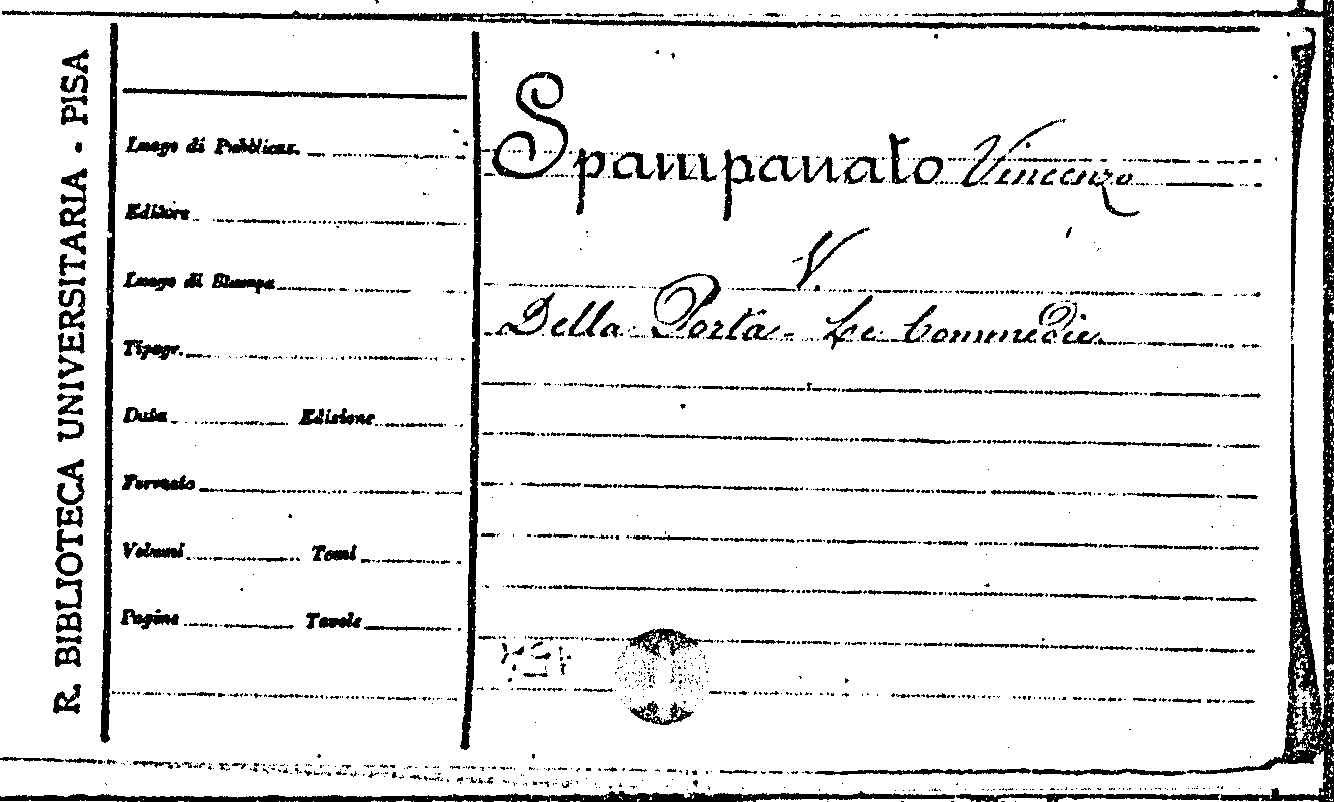 R. BIBLIOTECA UNIVERSITARIA - PISA
Luogo di Pubblicaz.
Editore
Luogo di Stampa
Tipogr.
Data Edizione
Formato
Volumi Tomi
Pagine Tavole
Spampanato Vincenzo
V.
Della Porta - Le Commedie.